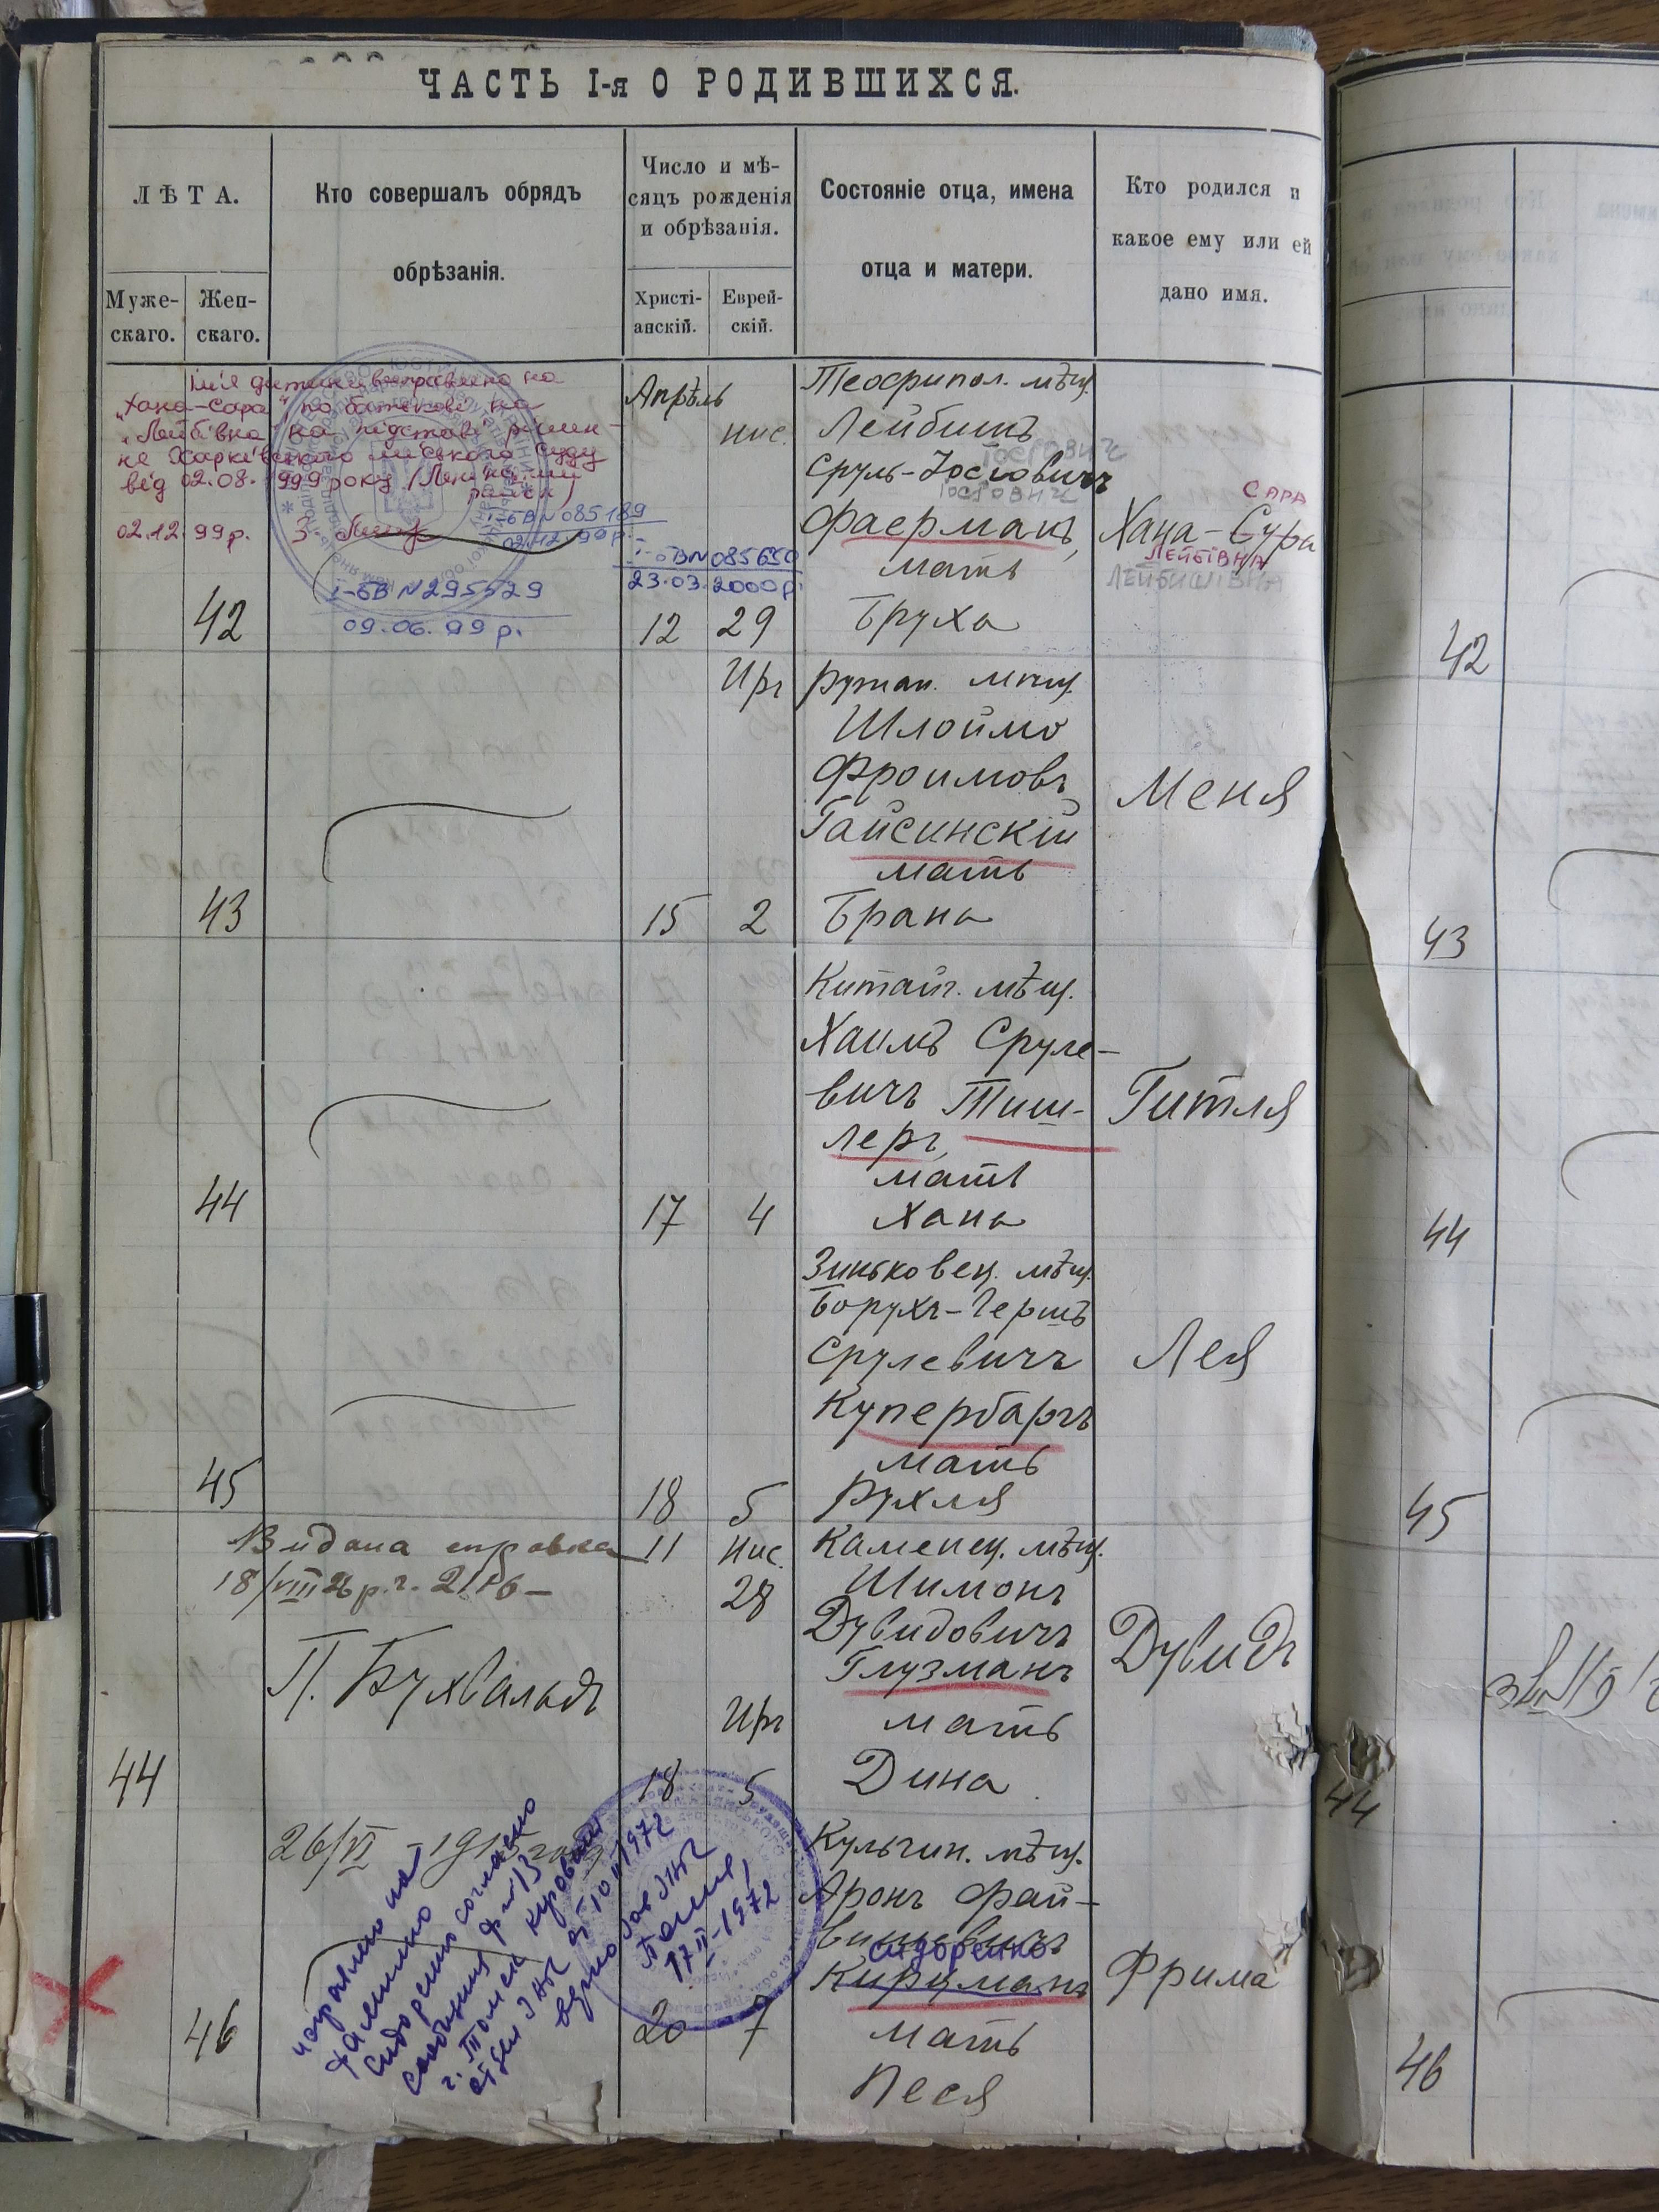 ЧАСТЬ I-я О РОДИВШИХСЯ.
ЛѢТА.
Муже-
скаго.
Жен-
скаго.
Кто совершалъ обрядъ
обрѣзанія.
Число и мѣ-
сяцъ рожденія
и обрѣзанія.
Христі-
анскій.
Еврей-
скій.
Состояніе отца, имена
отца и матери.
Кто родился и
какое ему или ей
дано имя.
Ім'я дитини виправлено на
"Хана-Сара", по батькові на
"Лейбівна" на підставі рішен-
ня Харківського міського суду
від 02.08.1999 року (Ленінський
район)
02.12.99р.
З.
І-БВ №085189
02.12.99р.
І-БВ№085650
23.03.2000р.
І-БВ №295529
09.06.99р.
42
Апрѣль
нис.
12 29
Теофипол. мѣщ.
Лейбишъ
Сруль-Іосіовичъ
Фаерманъ,
мать
Бруха
Хана-Сура
САРА
ЛЕЙБІВНА
43
Иръ
15 2
мѣщ.
Шлоймо
Фроимовъ
Гайсинскій
мать
Брана
Меня
44
17 4
Китайг. мѣщ.
Хаимъ Сруле-
вичъ Тиш-
леръ,
мать
Хана
Гитля
45
18 5
Зиньковец. мѣщ.
Борухъ-Гершъ
Срулевичъ
Купербаръъ
мать
Рухля
Лея
Видана справка
18/VIII 26 р.
П. Бухвальдъ
44
11 Нис.
28
Иръ
18 5
Каменец. мѣщ.
Шимонъ
Дувидовичъ
Глузманъ
мать
Дина
Дувидъ
26/VI
исправлено на
фамилию
Сидоренко согласно
сообщения ф №13
г. Томск Кировский
отдел ЗАГС от 10 II 1972
верно Зав ЗАГС
17 II-1972
46
20 7
Кульчин. мѣщ.
Аронъ Фай-
вишевичъ
Сидоренко
Кирцманъ
мать
Песя
Фрима
42
43
44
45
44
46